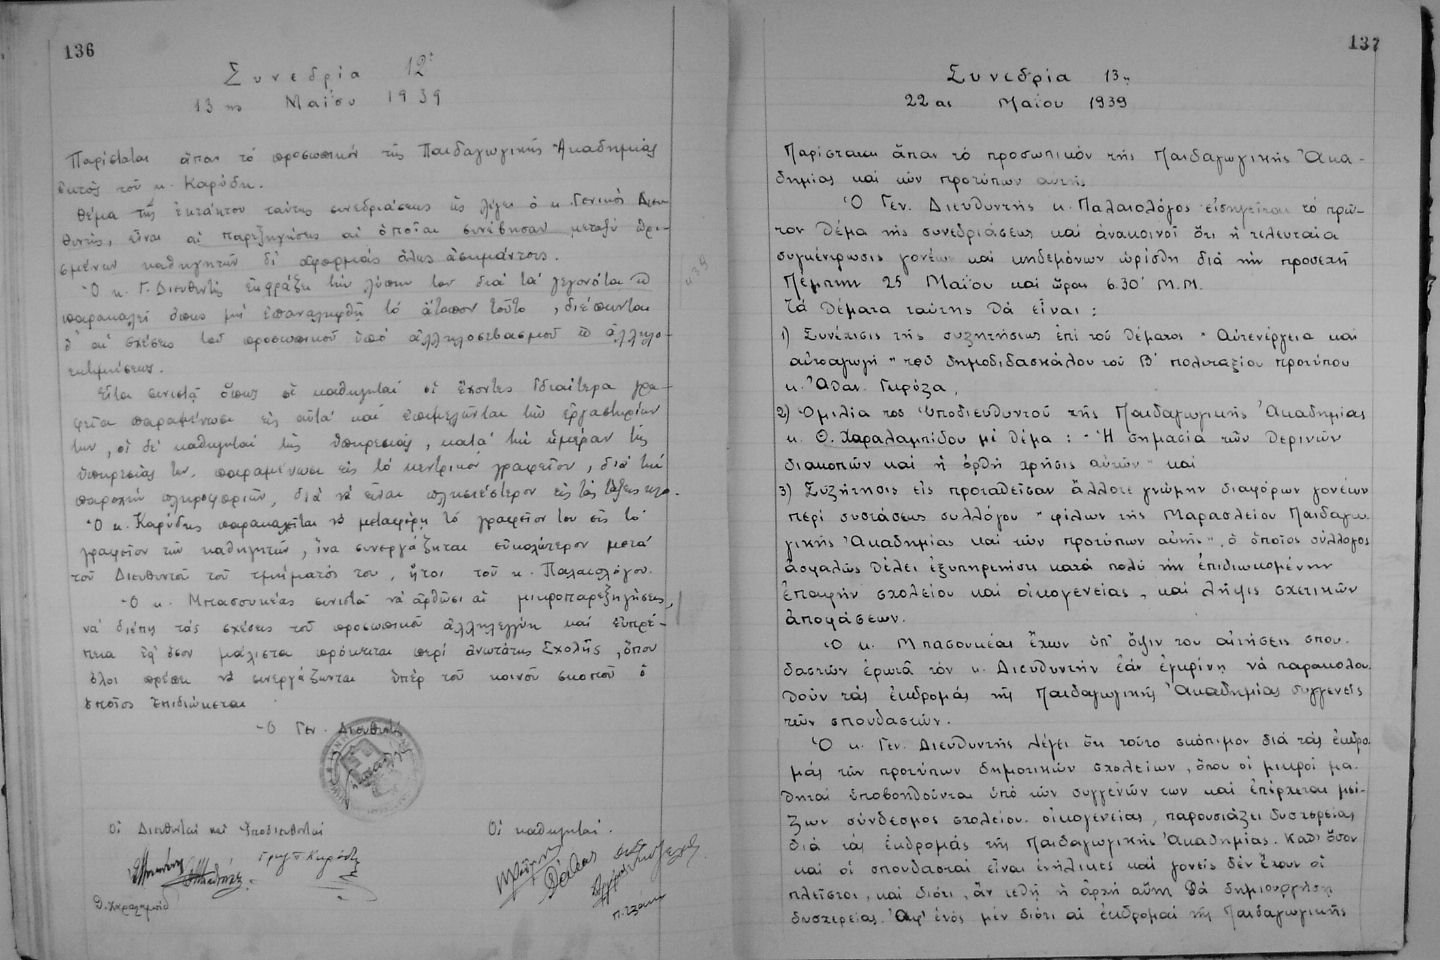 136
Συνεδρία 12η
13ης Μαΐου 1939
Παρίσταται ἅπαν τό προσωπικόν τῆς Παιδαγωγικῆς Ἀκαδημίας
ἐκτός τοῦ κ. Καρύδη.
Θέμα τῆς ἐκτάκτου ταύτης συνεδριάσεως ὡς λέγει ὁ κ. Γενικός Διευ-
θυντής, εἶναι αἱ παρεξηγήσεις αἱ ὁποῖαι συνέβησαν μεταξύ ὡρι-
σμένων καθηγητῶν δι' ἀφορμάς ὅλως ἀσημάντους.
Ὁ κ. Γ. Διευθυντής ἐκφράζει τήν λύπην του διά τά γεγονότα καί
παρακαλεῖ ὅπως μή ἐπαναληφθῇ τό ἄτοπον τοῦτο, διέπωνται
δ' αἱ σχέσεις τοῦ προσωπικοῦ ὑπό ἀλληλοσεβασμοῦ καί ἀλληλο-
εκτιμήσεως.
Εἶτα συνιστᾷ ὅπως οἱ καθηγηταί οἱ ἔχοντες ἰδιαίτερα γρα-
φεῖα παραμένωσι εἰς αὐτά καί ἐπιμελῶνται τῶν ἐργαστηρίων
των, οἱ δέ καθηγηταί τῆς ὑπηρεσίας, κατά τήν ἡμέραν τῆς
ὑπηρεσίας των παραμένωσι εἰς τό κεντρικόν γραφεῖον, διά τήν
παροχήν πληροφοριῶν, διά νά εἶναι πλησιέστερον εἰς τάς τάξεις κλπ.
Ὁ κ. Καρύδης παρακαλεῖται νά μεταφέρῃ τό γραφεῖον του εἰς τό
γραφεῖον τῶν καθηγητῶν, ἵνα συνεργάζηται εὐκολώτερον μετά
τοῦ Διευθυντοῦ τοῦ τμήματός του, ἤτοι τοῦ κ. Παλαιολόγου.
Ὁ κ. Μπασουκέας συνιστᾷ νά ἀρθῶσι αἱ μικροπαρεξηγήσεις,
νά διέπῃ τάς σχέσεις τοῦ προσωπικοῦ ἀλληλεγγύη καί εὐπρέ-
πεια ἐφ' ὅσον μάλιστα πρόκειται περί ἀνωτάτης Σχολῆς, ὅπου
ὅλοι πρέπει νά συνεργάζωνται ὑπέρ τοῦ κοινοῦ σκοποῦ ὁ
ὁποῖος ἐπιδιώκεται
Ὁ Γεν. Διευθυντής
Οἱ Διευθυνταί καί Ὑποδιευθυνταί
Οἱ καθηγηταί.
137
Συνεδρία 13η
22ας Μαΐου 1939
Παρίσταται ἅπαν τό προσωπικόν τῆς Παιδαγωγικῆς Ἀκα-
δημίας καί τῶν προτύπων αὐτῆς
Ὁ Γεν. Διευθυντής κ. Παλαιολόγος εἰσηγεῖται τό πρῶ-
τον θέμα τῆς συνεδριάσεως καί ἀνακοινοῖ ὅτι ἡ τελευταία
συγκέντρωσις γονέων καί κηδεμόνων ὡρίσθη διά τήν προσεχῆ
Πέμπτην 25 Μαΐου καί ὥραν 6.30' Μ.Μ.
Τά θέματα ταύτης θά εἶναι:
1) Συνέχισις τῆς συζητήσεως ἐπί τοῦ θέματος "Αὐτενέργεια καί
αὐτοαγωγή" τοῦ δημοδιδασκάλου τοῦ Β' πολυταξίου προτύπου
κ. Ἀθαν. Γκρόζα,
2) Ὁμιλία τοῦ Ὑποδιευθυντοῦ τῆς Παιδαγωγικῆς Ἀκαδημίας
κ. Θ. Χαραλαμπίδου μέ θέμα: "Ἡ σημασία τῶν θερινῶν
διακοπῶν καί ἡ ὀρθή χρῆσις αὐτῶν" καί
3) Συζήτησις εἰς προταθεῖσαν ἄλλοτε γνώμην διαφόρων γονέων
περί συστάσεως συλλόγου "φίλων τῆς Μαρασλείου Παιδαγω-
γικῆς Ἀκαδημίας καί τῶν προτύπων αὐτῆς", ὁ ὁποῖος σύλλογος
ἀσφαλῶς θέλει ἐξυπηρετήσει κατά πολύ τήν ἐπιδιωκομένην
ἐπαφήν σχολείου καί οἰκογενείας, καί λῆψις σχετικῶν
ἀποφάσεων.
Ὁ κ. Μπασουκέας ἔχων ὑπ' ὄψιν του αἰτήσεις σπου-
δαστῶν ἐρωτᾷ τόν κ. Διευθυντήν ἐάν ἐγκρίνῃ νά παρακολου-
θοῦν τάς ἐκδρομάς τῆς Παιδαγωγικῆς Ἀκαδημίας συγγενεῖς
τῶν σπουδαστῶν.
Ὁ κ. Γεν. Διευθυντής λέγει ὅτι τοῦτο σκόπιμον διά τάς ἐκδρο-
μάς τῶν προτύπων δημοτικῶν σχολείων, ὅπου οἱ μικροί μα-
θηταί ὑποβοηθοῦνται ὑπό τῶν συγγενῶν των καί ἐπέρχεται μεί-
ζων σύνδεσμος σχολείου οἰκογενείας, παρουσιάζει δυσχερείας
διά τάς ἐκδρομάς τῆς Παιδαγωγικῆς Ἀκαδημίας. Καθ' ὅσον
καί οἱ σπουδασταί εἶναι ἐνήλικες καί γονεῖς δέν ἔχουν οἱ
πλεῖστοι, καί διότι, ἄν τεθῇ ἡ ἀρχή αὕτη θά δημιουργήσῃ
δυσχερείας. Ἀφ' ἑνός μέν διότι αἱ ἐκδρομαί τῆς Παιδαγωγικῆς